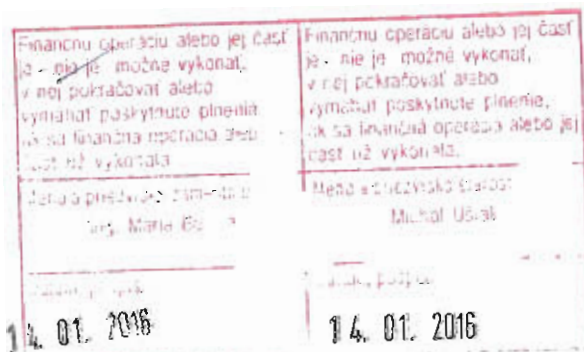 Finančnú operáciu alebo jej časť
je - nie je možné vykonať,
v nej pokračovať alebo
vymáhať poskytnuté plnenie
ak sa finančná operácia alebo
časť už vykonala
Meno a priezvisko
Ing. Mária
14. 01. 2016
Finančnú operáciu alebo jej časť
je - nie je možné vykonať,
v nej pokračovať alebo
vymáhať poskytnuté plnenie,
ak sa finančná operácia alebo jej
časť už vykonala.
Meno a priezvisko
Michal
14. 01. 2016